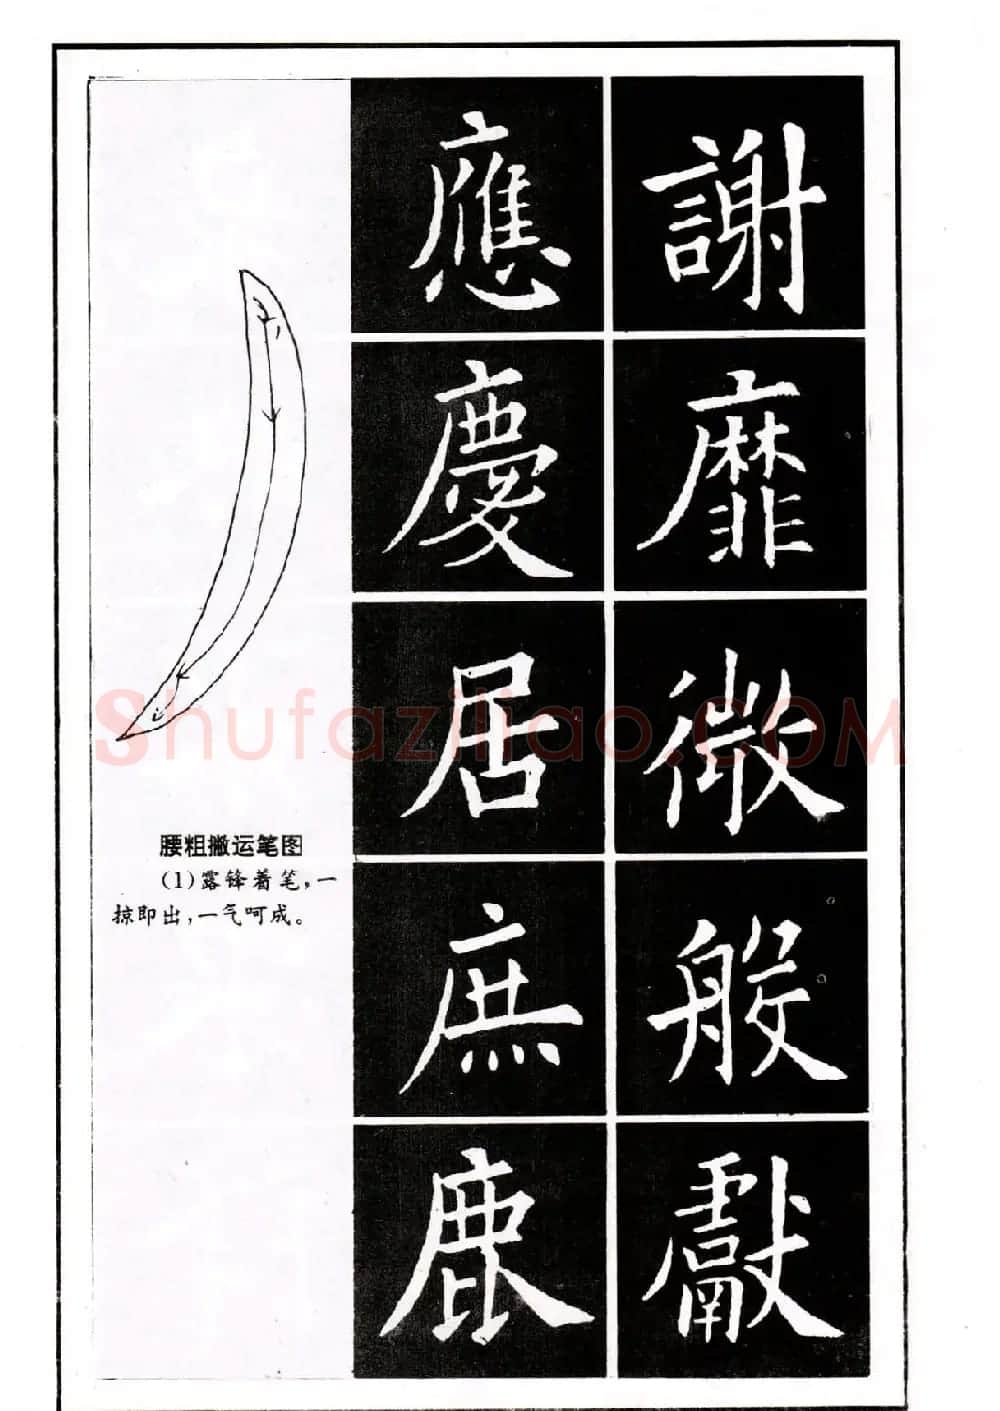 謝
靡
微
般
獻
應
慶
居
庶
鹿
腰粗撇运笔图
(1)露锋着笔,一
掠即出,一气呵成。
Shufaziliao.COM